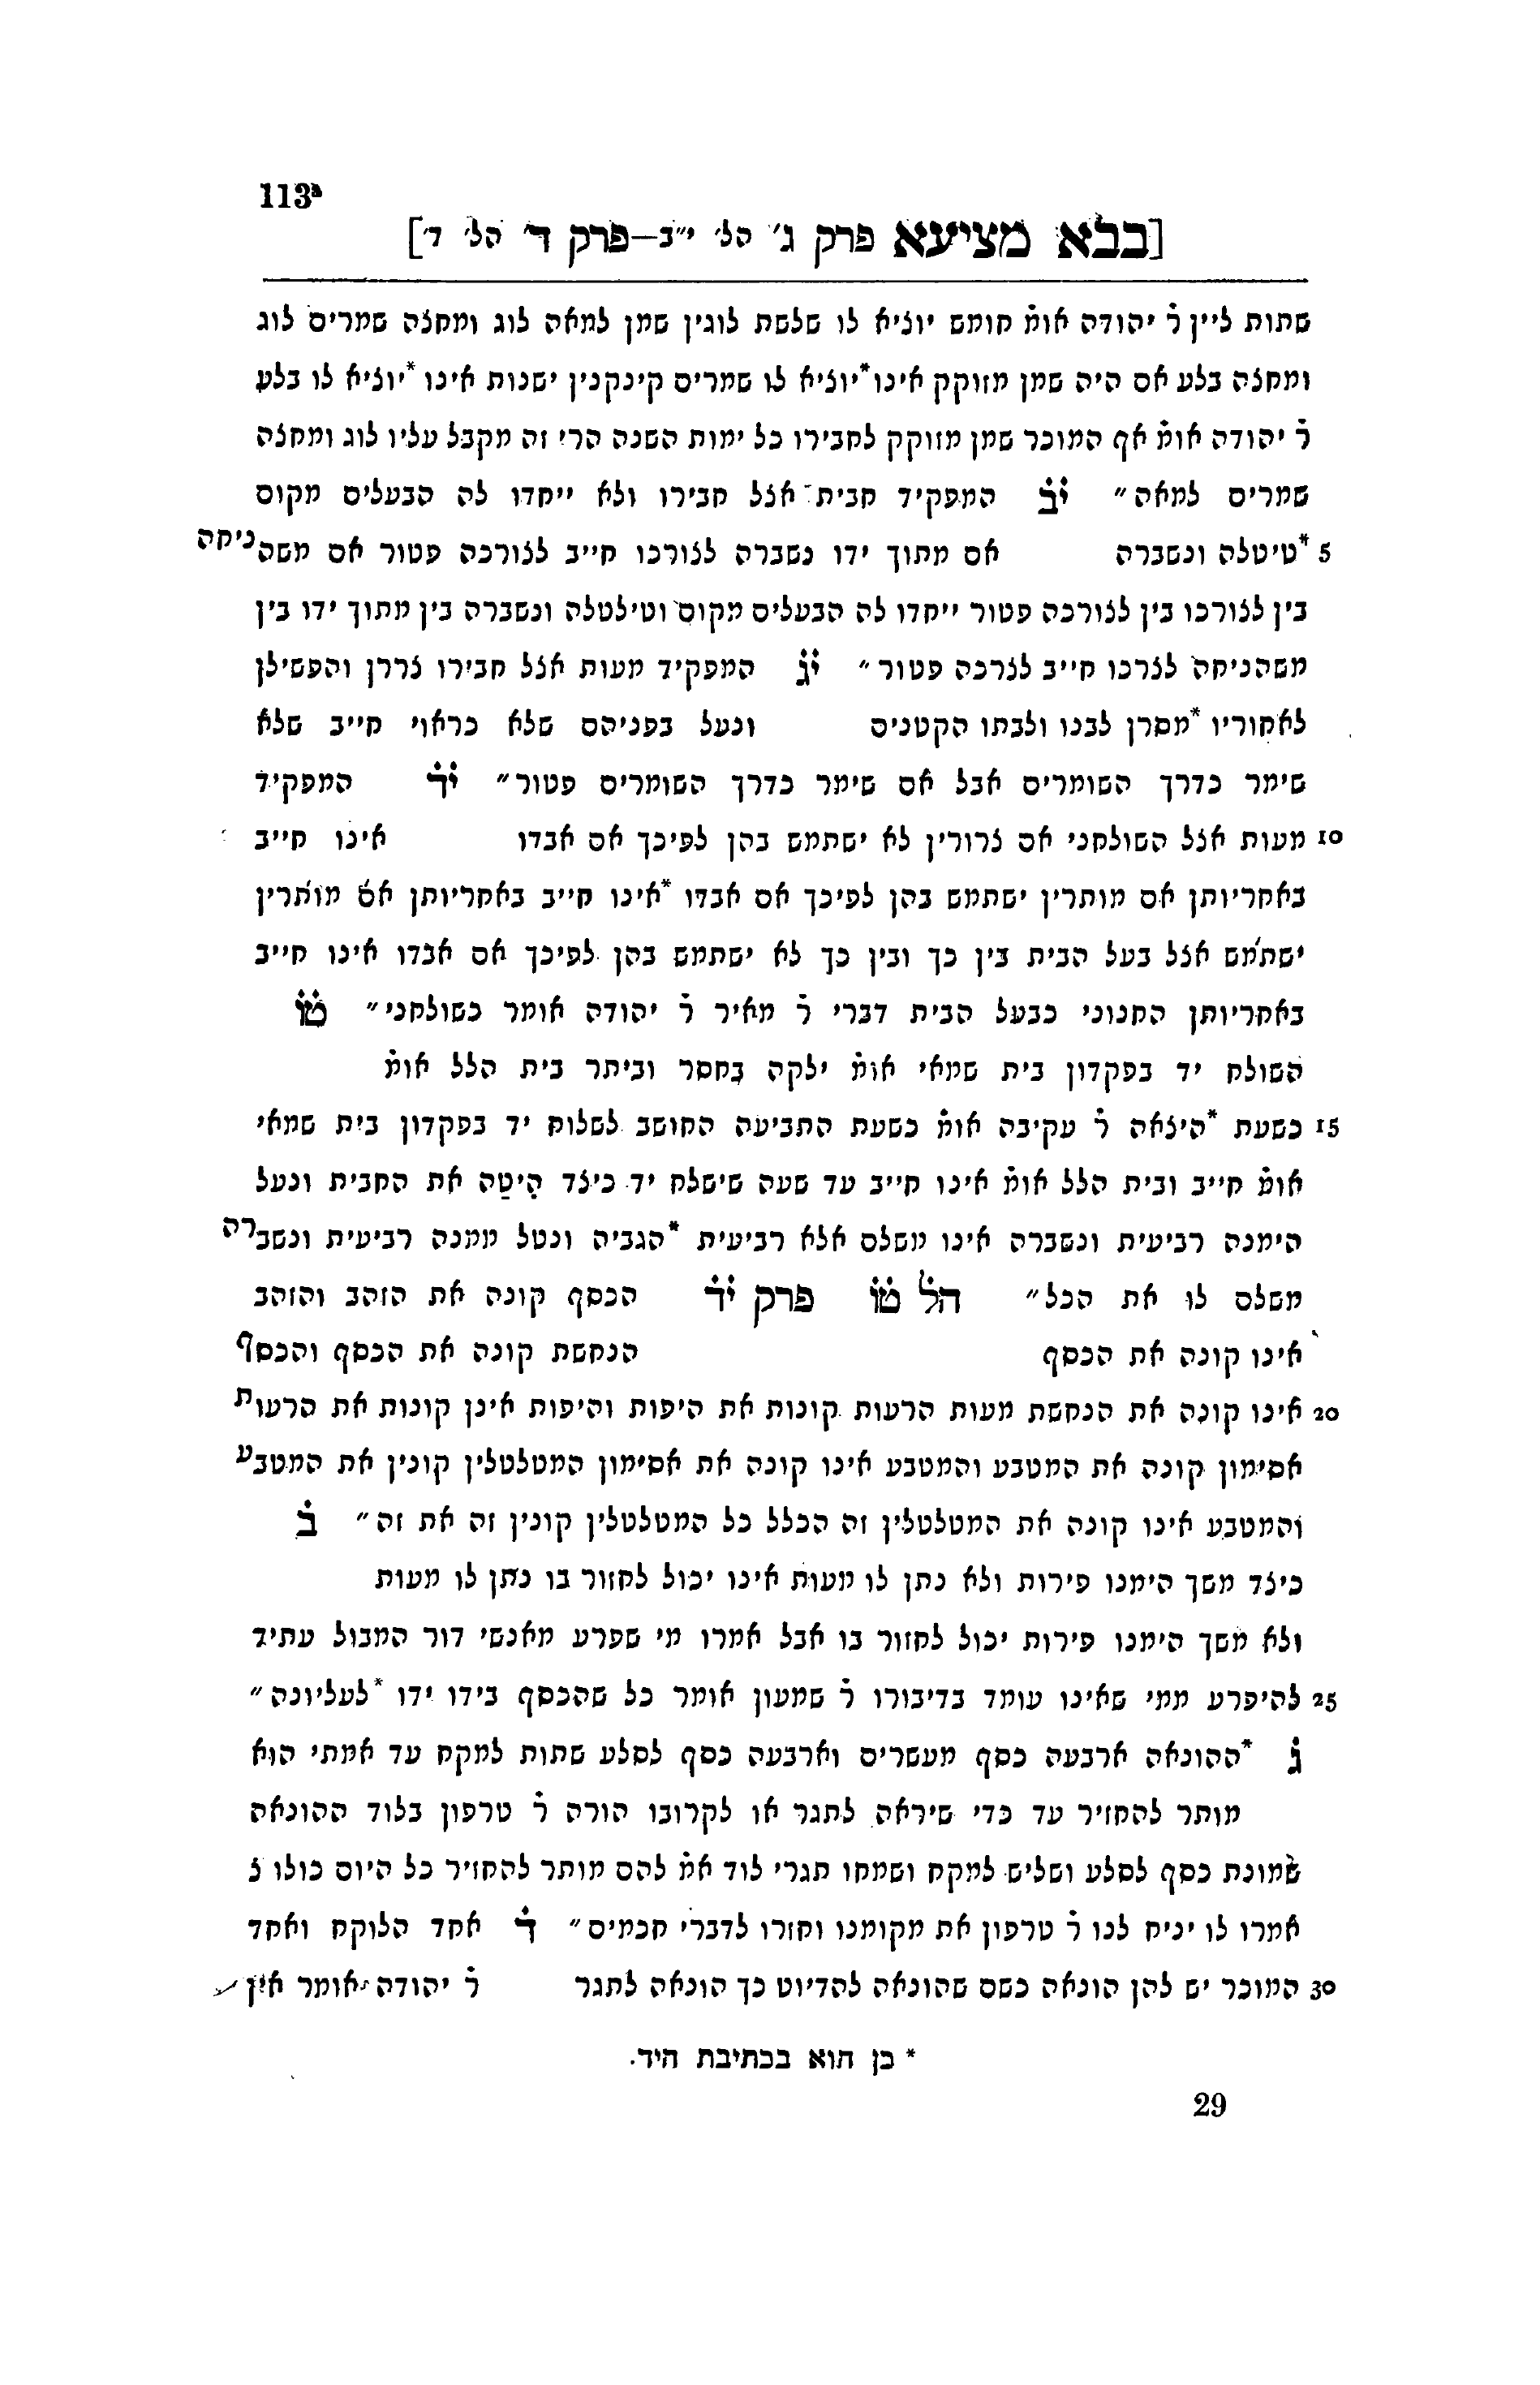 113ª
[בבא מציעא פרק ג' הל' י״ב–פרק ד' הל' ד']
שתות ליין ר̇ יהודה אומ̇ חומש יוציא לו שלשת לוגין שמן למאה לוג ומחצה שמרים לוג
ומחצה בלע אם היה שמן מזוקק אינו *יוציא לו שמרים קינקנין ישנות אינו *יוציא לו בלע
ר̇ יהודה אומ̇ אף המוכר שמן מזוקק לחבירו כל ימות השנה הרי זה מקבל עליו לוג ומחצה
שמרים למאה״ י̇ב̇ המפקיד חבית אצל חבירו ולא ייחדו לה הבעלים מקום
5 *טיטלה ונשברה אם מתוך ידו נשברה לצורכו חייב לצורכה פטור אם משהניחה
בין לצורכו בין לצורכה פטור ייחדו לה הבעלים מקום וטילטלה ונשברה בין מתוך ידו בין
משהניחה לצרכו חייב לצרכה פטור״ י̇ג̇ המפקיד מעות אצל חבירו צררן והפשילן
לאחוריו *מסרן לבנו ולבתו הקטנים ונעל בפניהם שלא כראוי חייב שלא
שימר כדרך השומרים אבל אם שימר כדרך השומרים פטור״ י̇ד̇ המפקיד
10 מעות אצל השולחני אם צרורין לא ישתמש בהן לפיכך אם אבדו אינו חייב
באחריותן אם מותרין ישתמש בהן לפיכך אם אבדו *אינו חייב באחריותן אם מותרין
ישתמש אצל בעל הבית בין כך ובין כך לא ישתמש בהן לפיכך אם אבדו אינו חייב
באחריותן החנוני כבעל הבית דברי ר̇ מאיר ר̇ יהודה אומר כשולחני״ ט̇ו̇
השולח יד בפקדון בית שמאי אומ̇ ילקה בחסר וביתר בית הלל אומ̇
15 כשעת *היצאה ר̇ עקיבה אומ̇ כשעת התביעה החושב לשלוח יד בפקדון בית שמאי
אומ̇ חייב ובית הלל אומ̇ אינו חייב עד שעה שישלח יד כיצד היטה את החבית ונעל
הימנה רביעית ונשברה אינו משלם אלא רביעית *הגביה ונטל ממנה רביעית ונשברה
משלם לו את הכל״ הל̇ ט̇ו̇ פרק י̇ד̇ הכסף קונה את הזהב והזהב
אינו קונה את הכסף הנחשת קונה את הכסף והכסף
20 אינו קונה את הנחשת מעות הרעות קונות את היפות והיפות אינן קונות את הרעות
אסימון קונה את המטבע והמטבע אינו קונה את אסימון המטלטלין קונין את המטבע
והמטבע אינו קונה את המטלטלין זה הכלל כל המטלטלין קונין זה את זה״ ב̇
כיצד משך הימנו פירות ולא נתן לו מעות אינו יכול לחזור בו נתן לו מעות
ולא משך הימנו פירות יכול לחזור בו אבל אמרו מי שפרע מאנשי דור המבול עתיד
25 להיפרע ממי שאינו עומד בדיבורו ר̇ שמעון אומר כל שהכסף בידו ידו *לעליונה״
ג̇ *ההונאה ארבעה כסף מעשרים וארבעה כסף לסלע שתות למקח עד אמתי הוא
מותר להחזיר עד כדי שיראה לתגר או לקרובו הורה ר̇ טרפון בלוד ההונאה
שמונת כסף לסלע ושליש למקח ושמחו תגרי לוד אמ̇ להם מותר להחזיר כל היום כולו צ
אמרו לו יניח לנו ר̇ טרפון את מקומנו וחזרו לדברי חכמים״ ד̇ אחד הלוקח ואחד
30 המוכר יש להן הונאה כשם שהונאה להדיוט כך הונאה לתגר ר̇ יהודה אומר אין
* כן הוא בכתיבת היד.
29